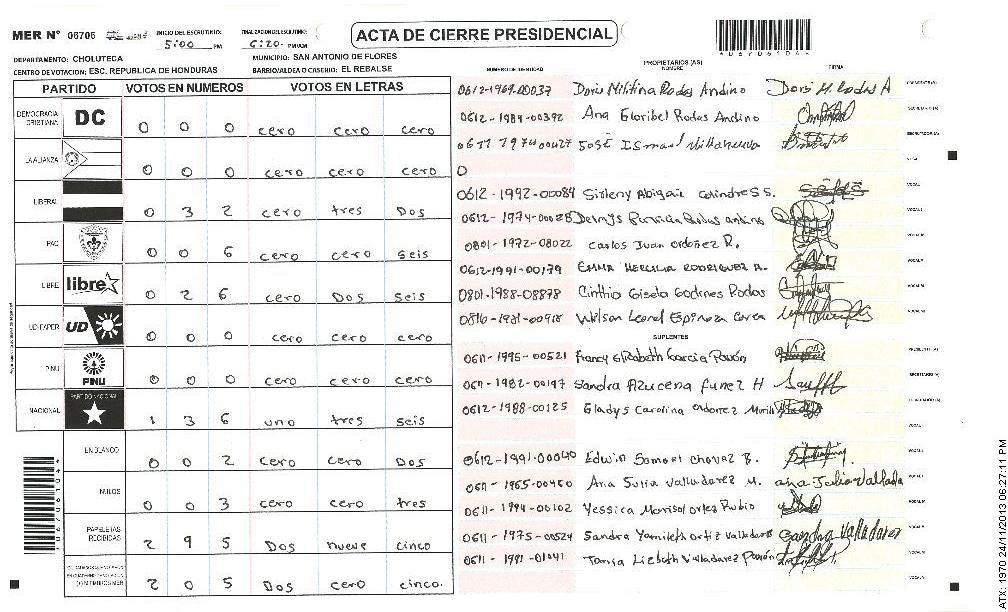 MER N° 06706 INICIO DEL ESCRUTINIO: 5:00 PM FINALIZACION DEL ESCRUTINIO: 6:20 PM/AM
ACTA DE CIERRE PRESIDENCIAL
DEPARTAMENTO: CHOLUTECA MUNICIPIO: SAN ANTONIO DE FLORES
CENTRO DE VOTACION: ESC. REPUBLICA DE HONDURAS BARRIO/ALDEA O CASERIO: EL REBALSE
PARTIDO VOTOS EN NUMEROS VOTOS EN LETRAS
DEMOCRACIA CRISTIANA DC 0 0 0 cero cero cero
LA ALIANZA 0 0 0 cero cero cero
LIBERAL 0 3 2 cero tres Dos
PAC 0 0 6 cero cero seis
LIBRE libre 0 2 6 cero Dos seis
UD-FAPER UD 0 0 0 cero cero cero
PINU PINU 0 0 0 cero cero cero
NACIONAL PARTIDO NACIONAL 1 3 6 uno tres seis
EN BLANCO 0 0 2 cero cero Dos
NULOS 0 0 3 cero cero tres
PAPELETAS RECIBIDAS 2 9 5 Dos nueve cinco
2 0 5 Dos cero cinco.
NUMERO DE IDENTIDAD PROPIETARIOS (AS) NOMBRE FIRMA
0612-1969-00037 Doris Militina Rodas Andino Doris M. Rodas A
0612-1989-00392 Ana Floribel Rodas Andino
José Ismael Villanueva
0
0612-1992-00084 Sirleny Abigail Colindres S.
0612-1974-00028
0801-1972-08022 Carlos Juan Ordoñez R.
0612-1991-00179 EMMA HERCILIA RODRIGUEZ A.
0801-1988-08878 Cinthia Gisela Godines Rodas
0816-1981-00918 Wilson Leonel Espinoza
SUPLENTES
0611-1995-00521 Francy Elizabeth Garcia Pavón
0611-1982-00197 Sandra Azucena Funez H
0612-1988-00125 Gladys Carolina Ordoñez Murillo
0612-1991-00040 Edwin Samael Chavez B.
0611-1965-00450 Ana Julia Valladarez M. ana Julia Vallada
0611-1994-00102 Yessica Marisol Ortez Rubio
0611-1975-00524 Sandra Yamileth Ortiz Valladares Sandra Valladares
0611-1991-01041 Tania Lizbeth Valladarez Pavón
ATX: 1970 24/11/2013 06:27:11 PM